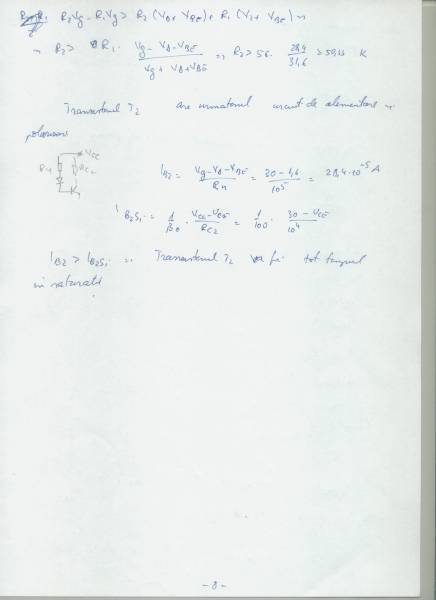 R2Vg - R1Vg > R2 (VD + VBE) + R1 (VD + VBE) =>
=> R2 > R1 · (Vg - VD - VBE)/(Vg + VD + VBE) => R2 > 56 · 28,4/31,6 > 50,33 K
Tranzistorul T2 are urmatorul circuit de alimentare si
polarizare
VCC
R4 RC2
IB2 = (Vg - VD - VBE)/R4 = (30 - 1,6)/10^5 = 28,4 · 10^-5 A
IB2Si = 1/β0 · (VCC - VCE)/RC2 = 1/100 · (30 - VCE)/10^4
IB2 > IB2Si => Tranzistorul T2 va fi tot timpul
in saturatie
- 8 -